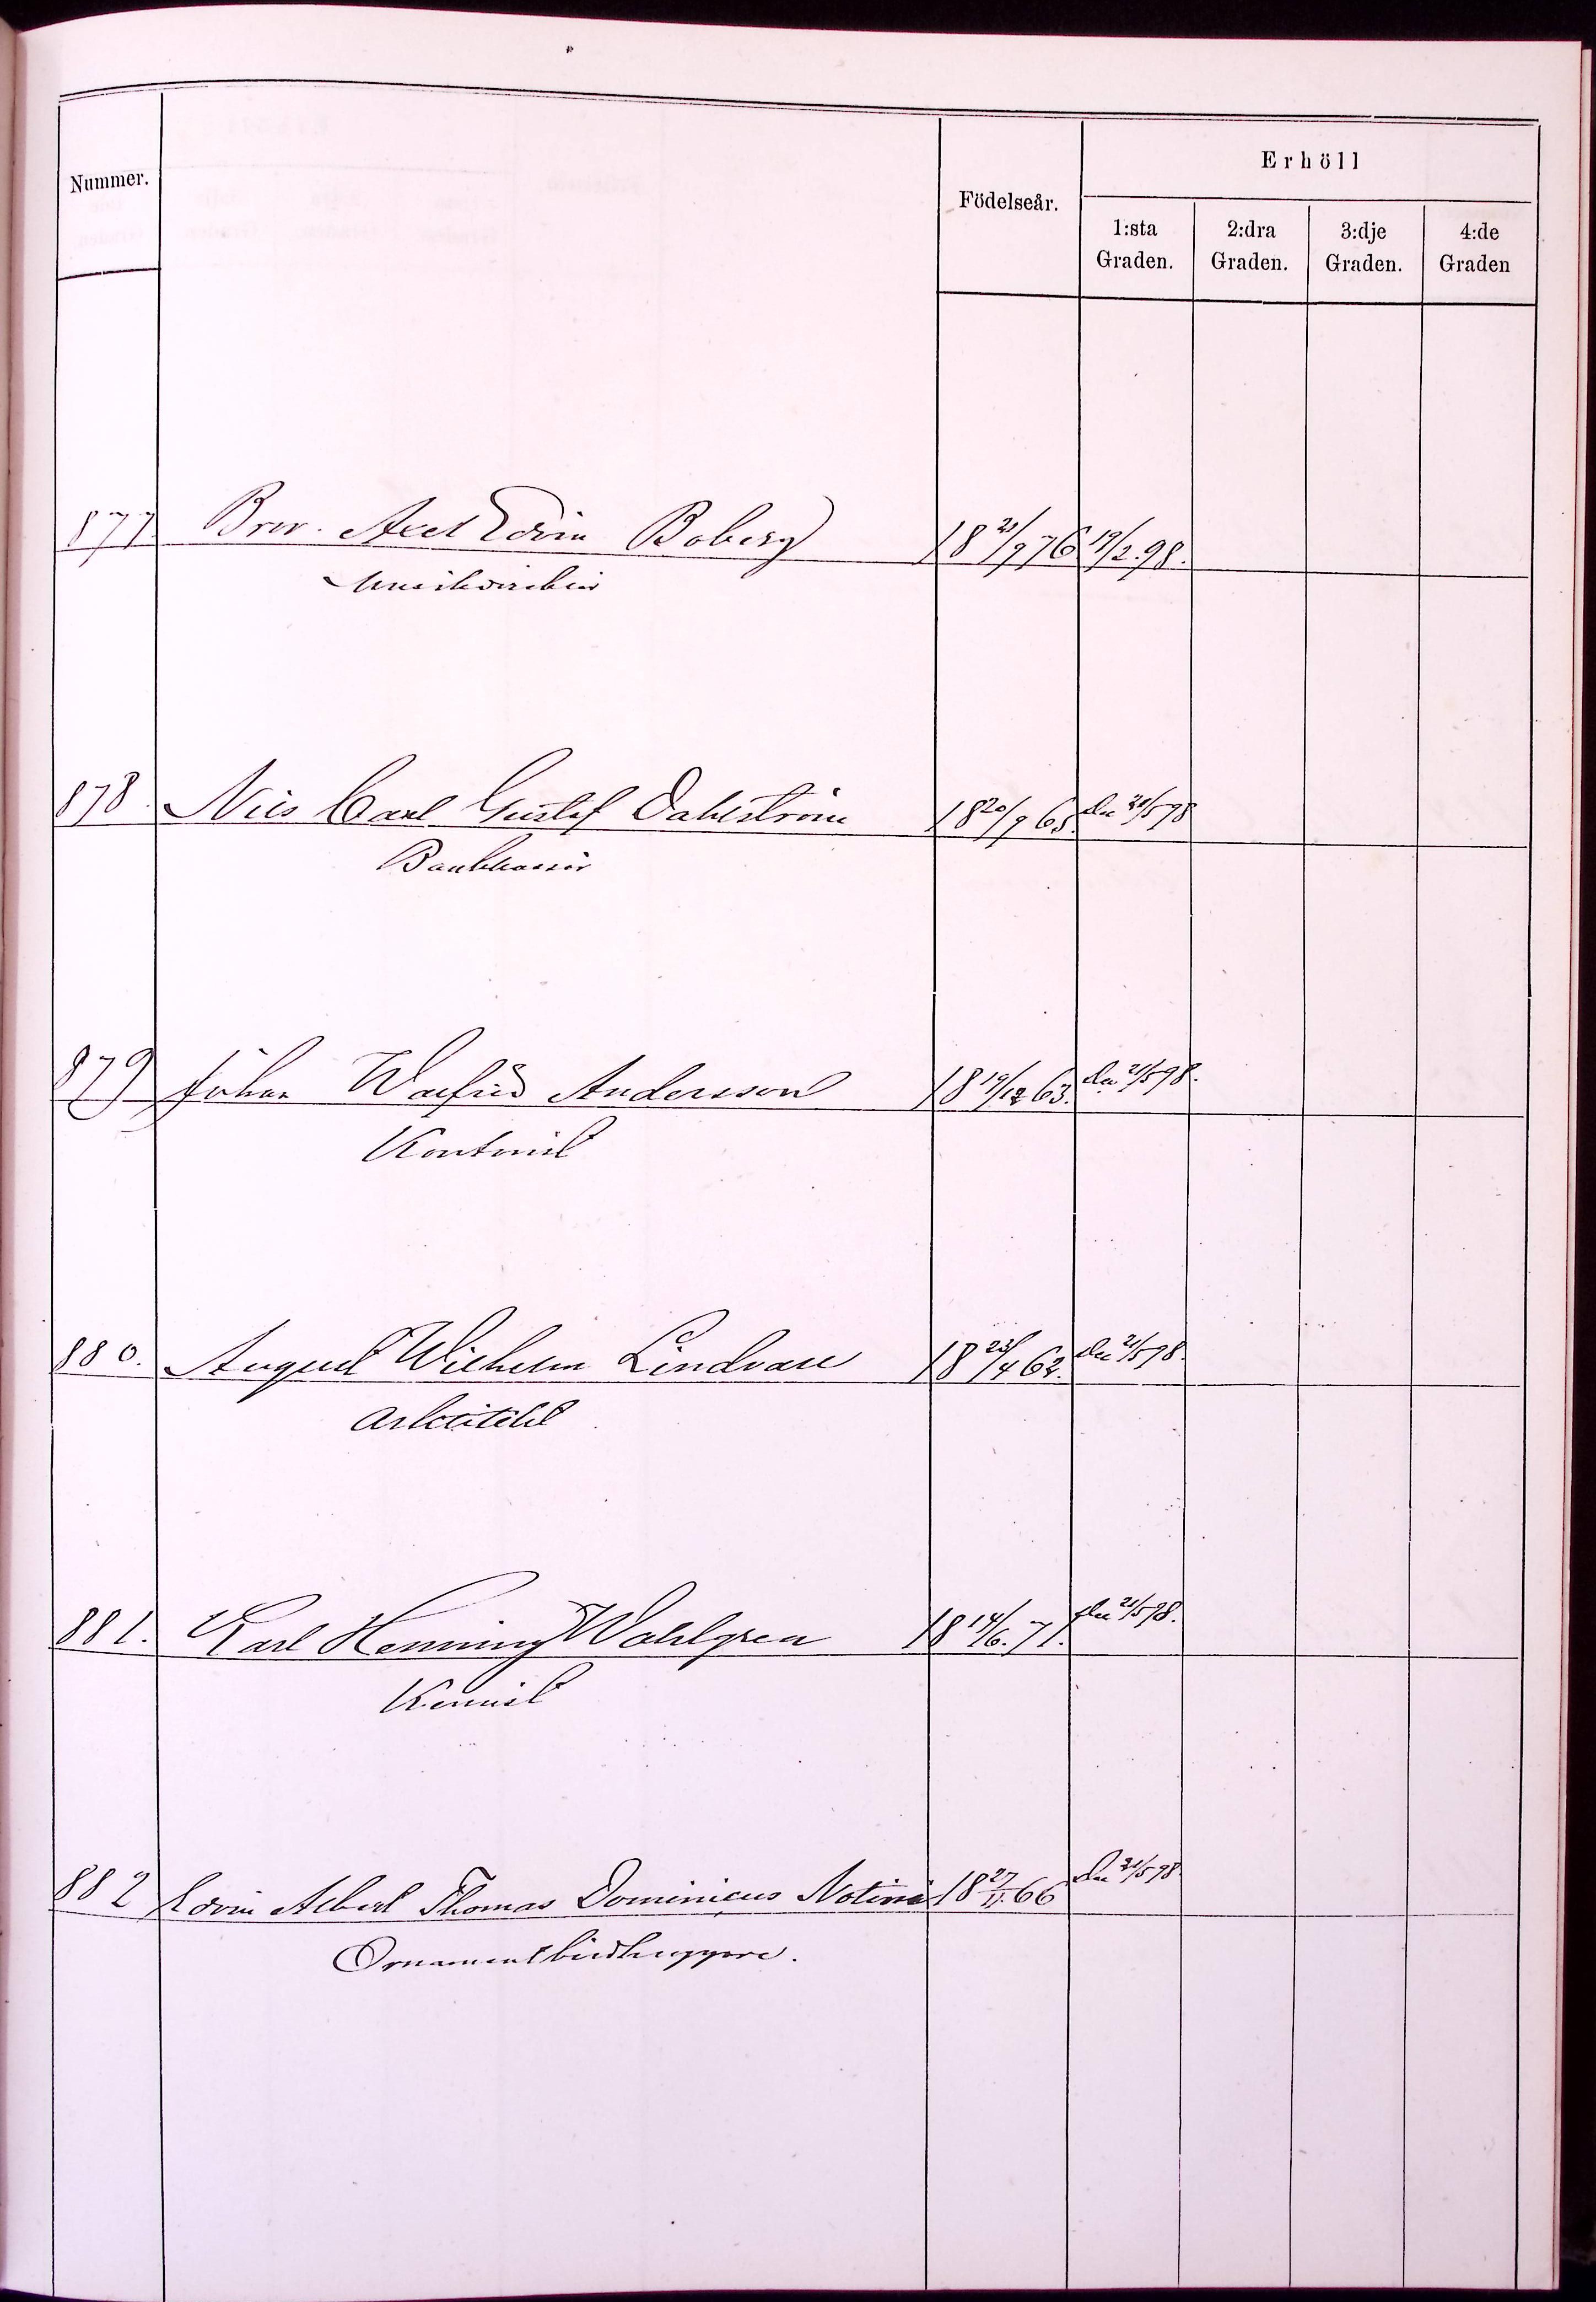 Erhöll
Nummer.
Födelseår.
1:sta Graden.
2:dra Graden.
3:dje Graden.
4:de Graden
877. Bror Axel Edvin Boberg 18 21/9 76 19/2.98.
Musikdirektör
878. Nils Carl Gustaf Dahlström 18 20/9 65. den 21/5 98
Bankkassör
879 Johan Walfrid Andersson 18 19/12 63. den 21/5 98.
Kontorist
880. August Wilhelm Lindvall 18 23/4 62. den 21/5 98.
Arkitekt
881. Karl Henning Wahlgren 18 14/6. 71. den 21/5 98.
Kemist
882 Edvin Albert Thomas Dominicus Notini 18 27/11. 66 den 21/5 98.
Ornamentbildhuggare.